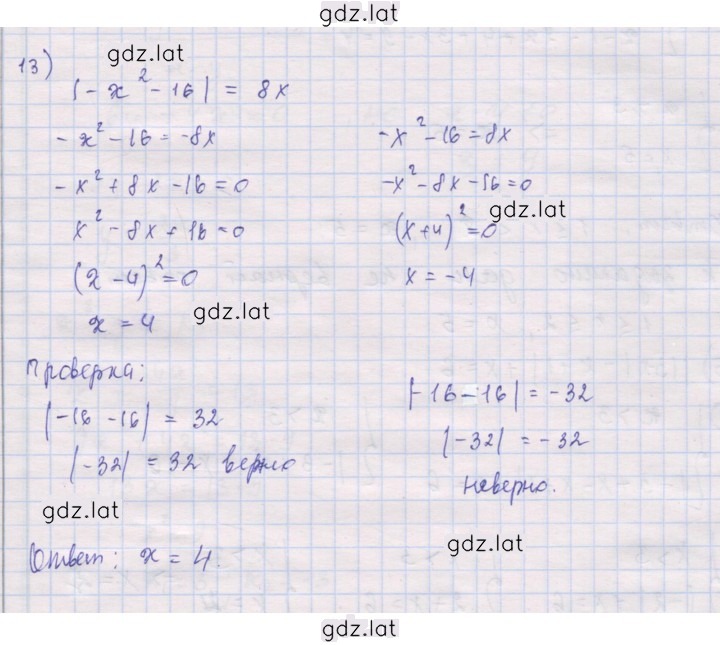 gdz.lat
gdz.lat
13)
|-x² - 16| = 8x
-x² - 16 = -8x
-x² + 8x - 16 = 0
x² - 8x + 16 = 0
(x - 4)² = 0
x = 4
gdz.lat
-x² - 16 = 8x
-x² - 8x - 16 = 0
gdz.lat
(x + 4)² = 0
x = -4
Проверка:
|-16 - 16| = 32
|-32| = 32 верно
gdz.lat
|-16 - 16| = -32
|-32| = -32
неверно.
gdz.lat
Ответ: x = 4.
gdz.lat